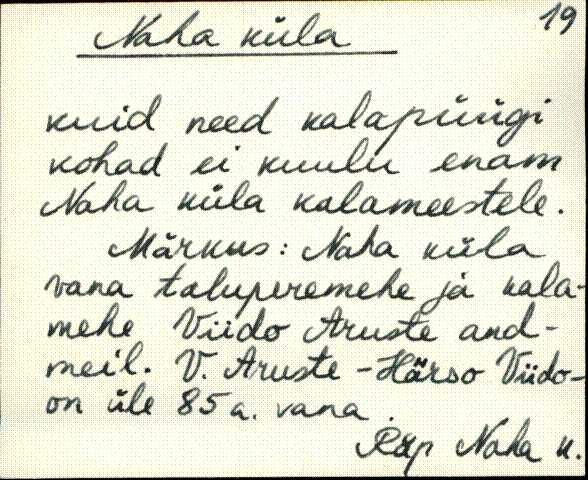 19
Naha küla
kuid need kalapüügi
kohad ei kuulu enam
Naha küla kalameestele.
Märkus: Naha küla
vana taluperemehe ja kala-
mehe Viido Aruste and-
meil. V. Aruste - Härso Viido-
on üle 85 a. vana.
Räp Naha k.